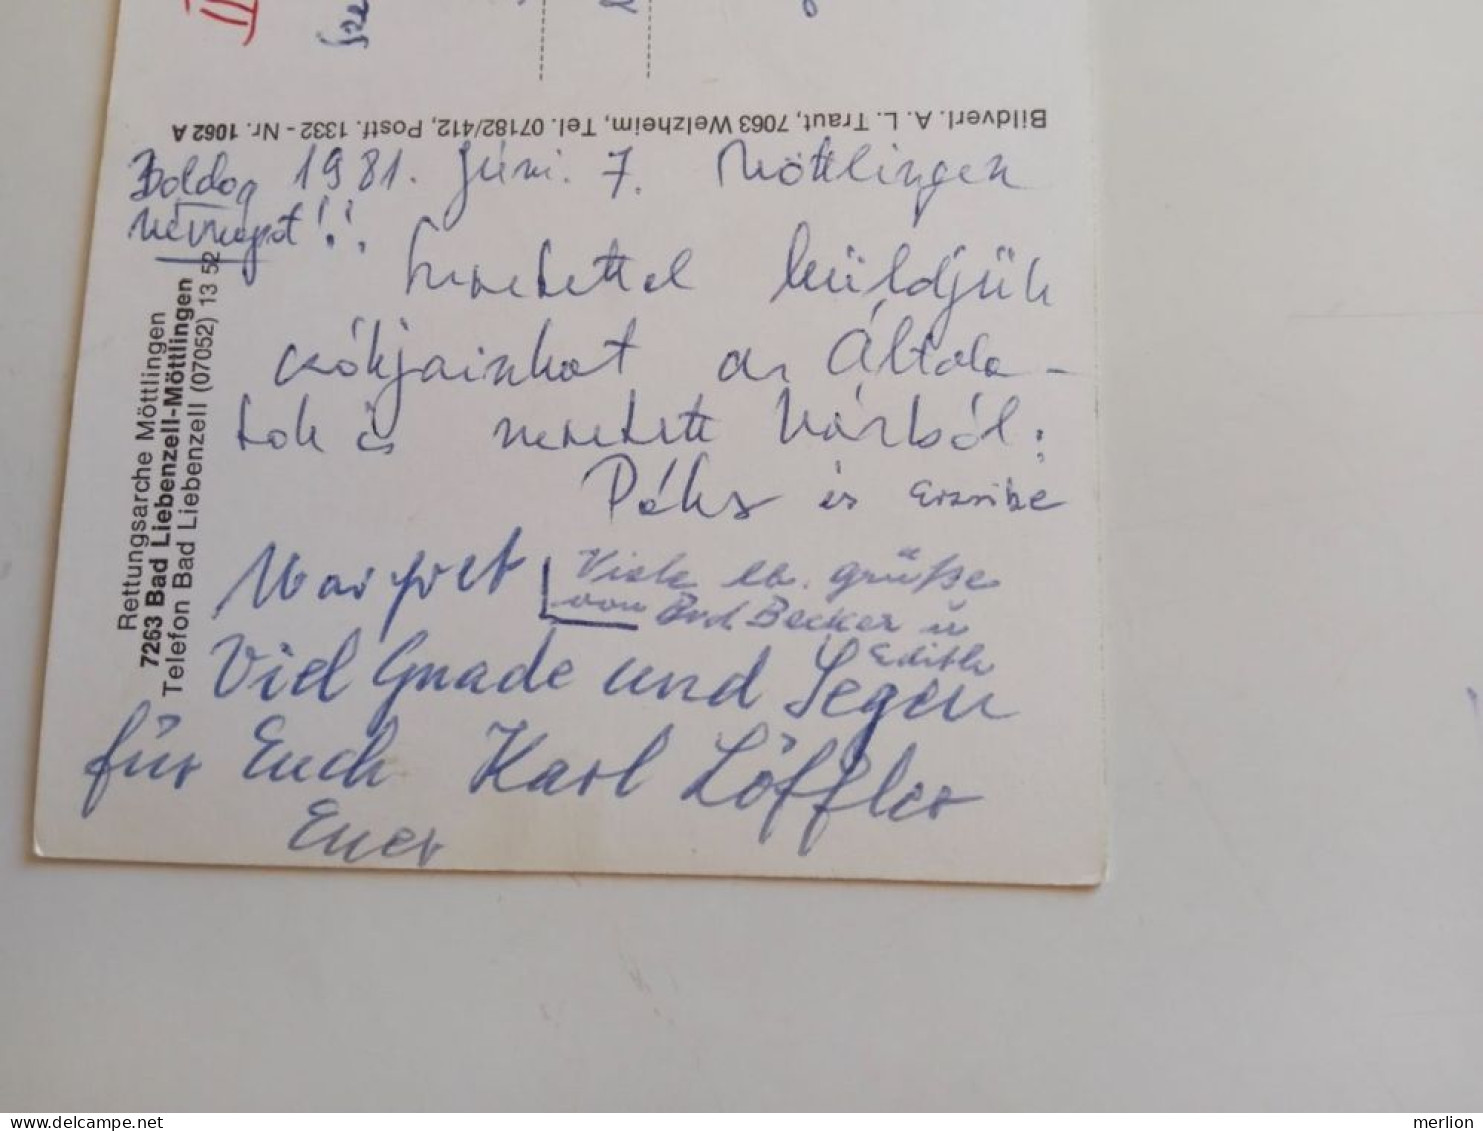 Bildverl. A. L. Traut, 7063 Welzheim, Tel. 07182/412, Postf. 1332 - Nr. 1062 A
Boldog
névnapot!!
1981. Júni. 7. Möttlingen
Szeretettel küldjük
csókjainkat az Általa-
tok is szeretett Várból:
és Erzsike
Margret
Viele lb. Grüße
von Brd. Becker u
Edith
Viel Gnade und Segen
für Euch Karl Löffler
Euer
Rettungsarche Möttlingen
7263 Bad Liebenzell-Möttlingen
Telefon Bad Liebenzell (07052) 13 52
merlion